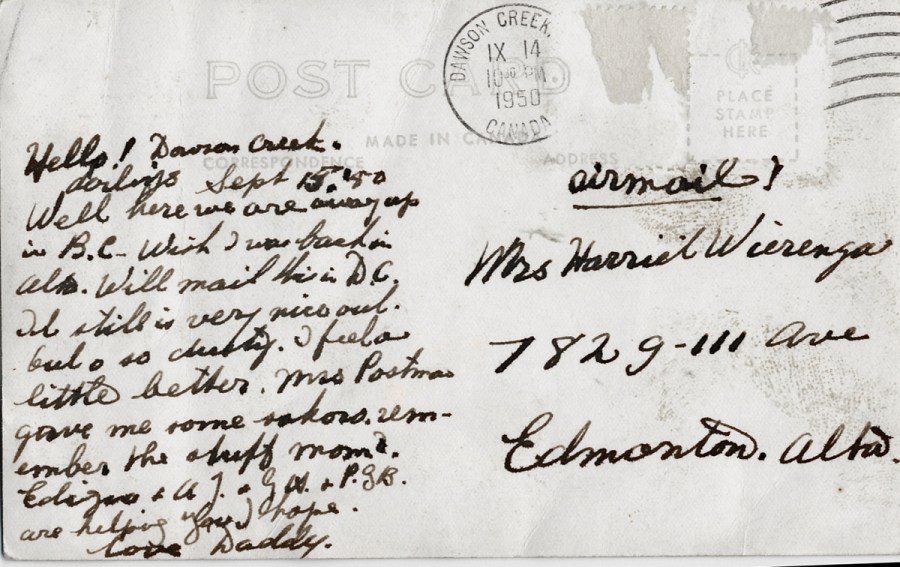 POST CARD
DAWSON CREEK.
IX 14
1950
CANADA
PLACE
STAMP
HERE
MADE IN CANADA
CORRESPONDENCE
ADDRESS
Hello! Dawson Creek.
darlings Sept 15. '50
Well here we are away up
in B.C. Wish I was back in
Alta. Will mail this in D.C.
It still is very nice out.
but o so dusty. I feel a
little better. Mrs Postma
gave me some rem-
ember the stuff mom?
+ A J. + G H. + P.G.B.
are helping you I hope.
Love Daddy.
airmail!
Mrs Harriet Wierenga
7829-111 Ave
Edmonton. Alta.